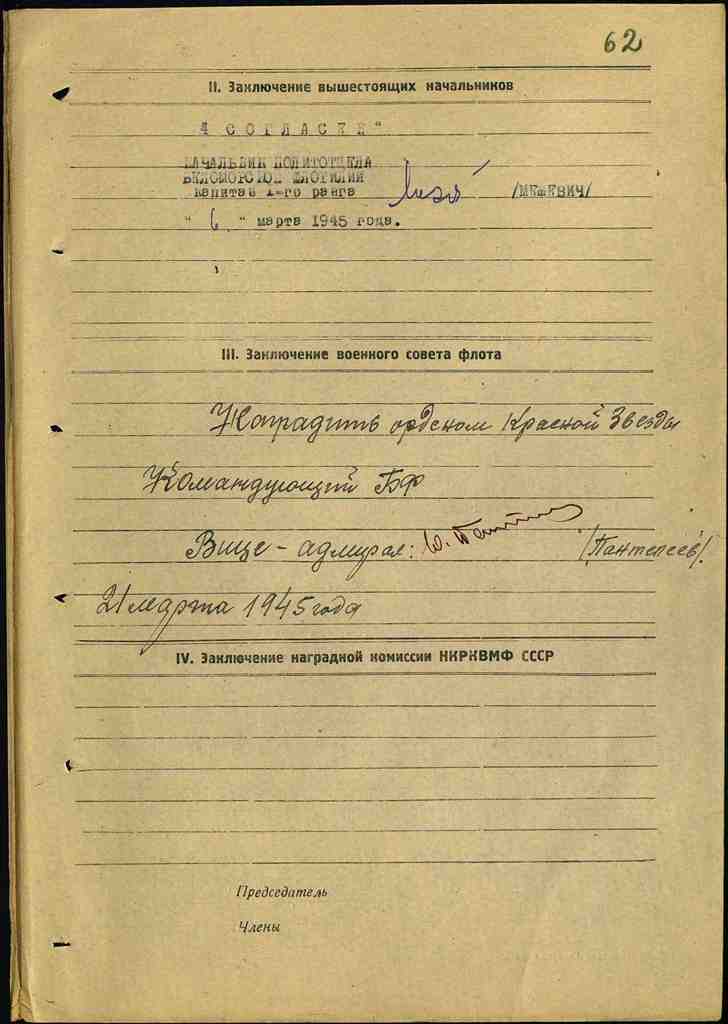 62
II. Заключение вышестоящих начальников
СОГЛАСЕН"
НАЧАЛЬНИК ПОЛИТОТДЕЛА
БЕЛОМОРСКОЙ ФЛОТИЛИИ
капитан 1-го ранга /МЕШЕВИЧ/
" 6 " марта 1945 года.
III. Заключение военного совета флота
Наградить орденом Красной Звезды
Командующий БФ
Вице-адмирал: /Пантелеев/.
21 марта 1945 года
IV. Заключение наградной комиссии НКРКВМФ СССР
Председатель
Члены